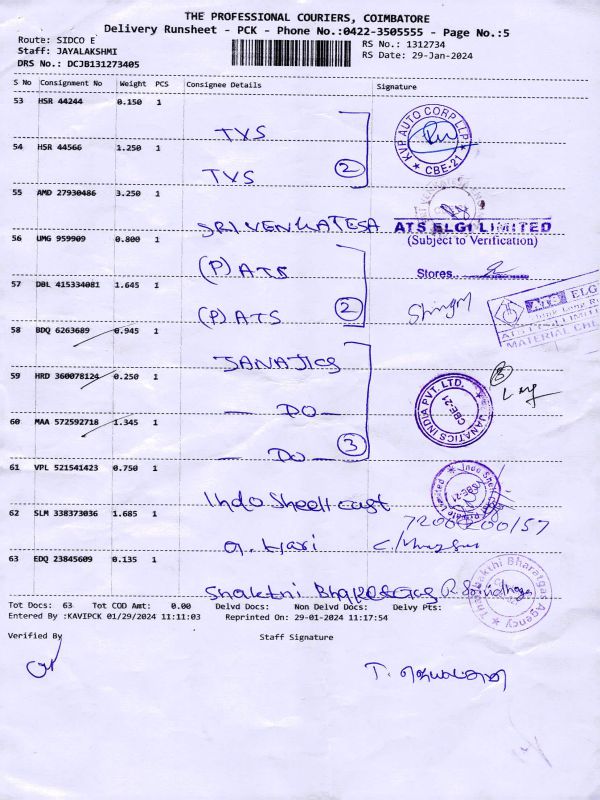 THE PROFESSIONAL COURIERS, COIMBATORE
Delivery Runsheet - PCK - Phone No.:0422-3505555 - Page No.:5
Route: SIDCO E
Staff: JAYALAKSHMI
DRS No.: DCJB131273405
RS No.: 1312734
RS Date: 29-Jan-2024
S No Consignment No Weight PCS Consignee Details Signature
53 HSR 44244 0.150 1
TVS
KVP AUTO CORP LLP
CBE-21
54 HSR 44566 1.250 1
TVS
2
55 AMD 27930486 3.250 1
SRI VENKATESA
ATS ELGI LIMITED
(Subject to Verification)
56 UMG 959909 0.800 1
(P) ATS
Stores
57 DBL 415334081 1.645 1
(P) ATS
2
ATS ELGI
MATERIAL
58 BDQ 6263689 0.945 1
JANATICS
59 HRD 360078124 0.250 1
- DO -
JANATICS INDIA PVT. LTD.
CBE-21
60 MAA 572592718 1.345 1
- DO -
3
61 VPL 521541423 0.750 1
Indo Shell cast
Indo Shell Cast Private Limited
62 SLM 338373036 1.685 1
G. Hari
7200200157
63 EDQ 23845609 0.135 1
Shakthi Bharatgas
Bharatgas Agency
Tot Docs: 63 Tot COD Amt: 0.00 Delvd Docs: Non Delvd Docs: Delvy Pts:
Entered By :KAVIPCK 01/29/2024 11:11:03 Reprinted On: 29-01-2024 11:17:54
Verified By Staff Signature